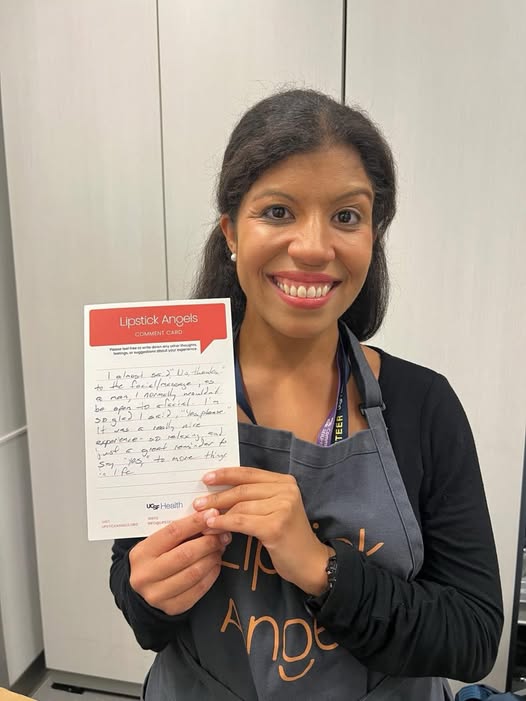 Lipstick Angels
COMMENT CARD
Please feel free to write down any other thoughts,
feelings, or suggestions about your experience.
I almost said "No thanks"
to the facial/massage, as
a man, I normally wouldn't
be open to a facial. I'm
so glad I said, "Yes please"
It was a really nice
experience so relaxing and
just a great reminder to
say "yes," to more things
in life
UCSF Health
VISIT
LIPSTICKANGELS.ORG
TEER
Lipstick
Angels